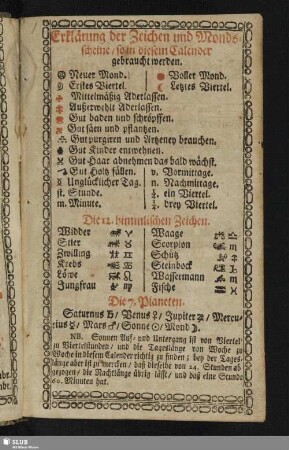 Erklärung der Zeichen und Monds-
scheine / so in diesem Calender
gebraucht werden.
Neuer Mond. Voller Mond.
Erstes Viertel. Letztes Viertel.
Mittelmäßig Aderlassen.
Außerwehlt Aderlassen.
Gut baden und schröpffen.
Gut säen und pflantzen.
Gut purgiren und Artzeney brauchen.
Gut Kinder entwehnen.
Gut Haar abnehmen das bald wächst.
Gut Holtz fällen. v. Vormittage.
Unglücklicher Tag. n. Nachmittage.
st. Stunde. ein Viertel.
m. Minute. drey Viertel.
Die 12. himmlischen Zeichen.
Widder ♈ Waage ♎
Stier ♉ Scorpion ♏
Zwilling ♊ Schütz ♐
Krebs ♋ Steinbock ♑
Löwe ♌ Wassermann ♒
Jungfrau ♍ Fische ♓
Die 7. Planeten.
Saturnus ♄ / Venus ♀ / Jupiter ♃ / Mercu-
rius ☿ / Mars ♂ / Sonne ☉ / Mond ☽.
NB. Sonnen Auf- und Untergang ist von Viertel
zu Viertelstunden / und die Tageslänge von Woche zu
Woche in diesem Calender richtig zu finden ; bey der Tages-
länge aber ist zu mercken / daß dieselbe von 24. Stunden ab-
gezogen / die Nachtlänge übrig läßt / und daß eine Stunde
60. Minuten hat.
SLUB